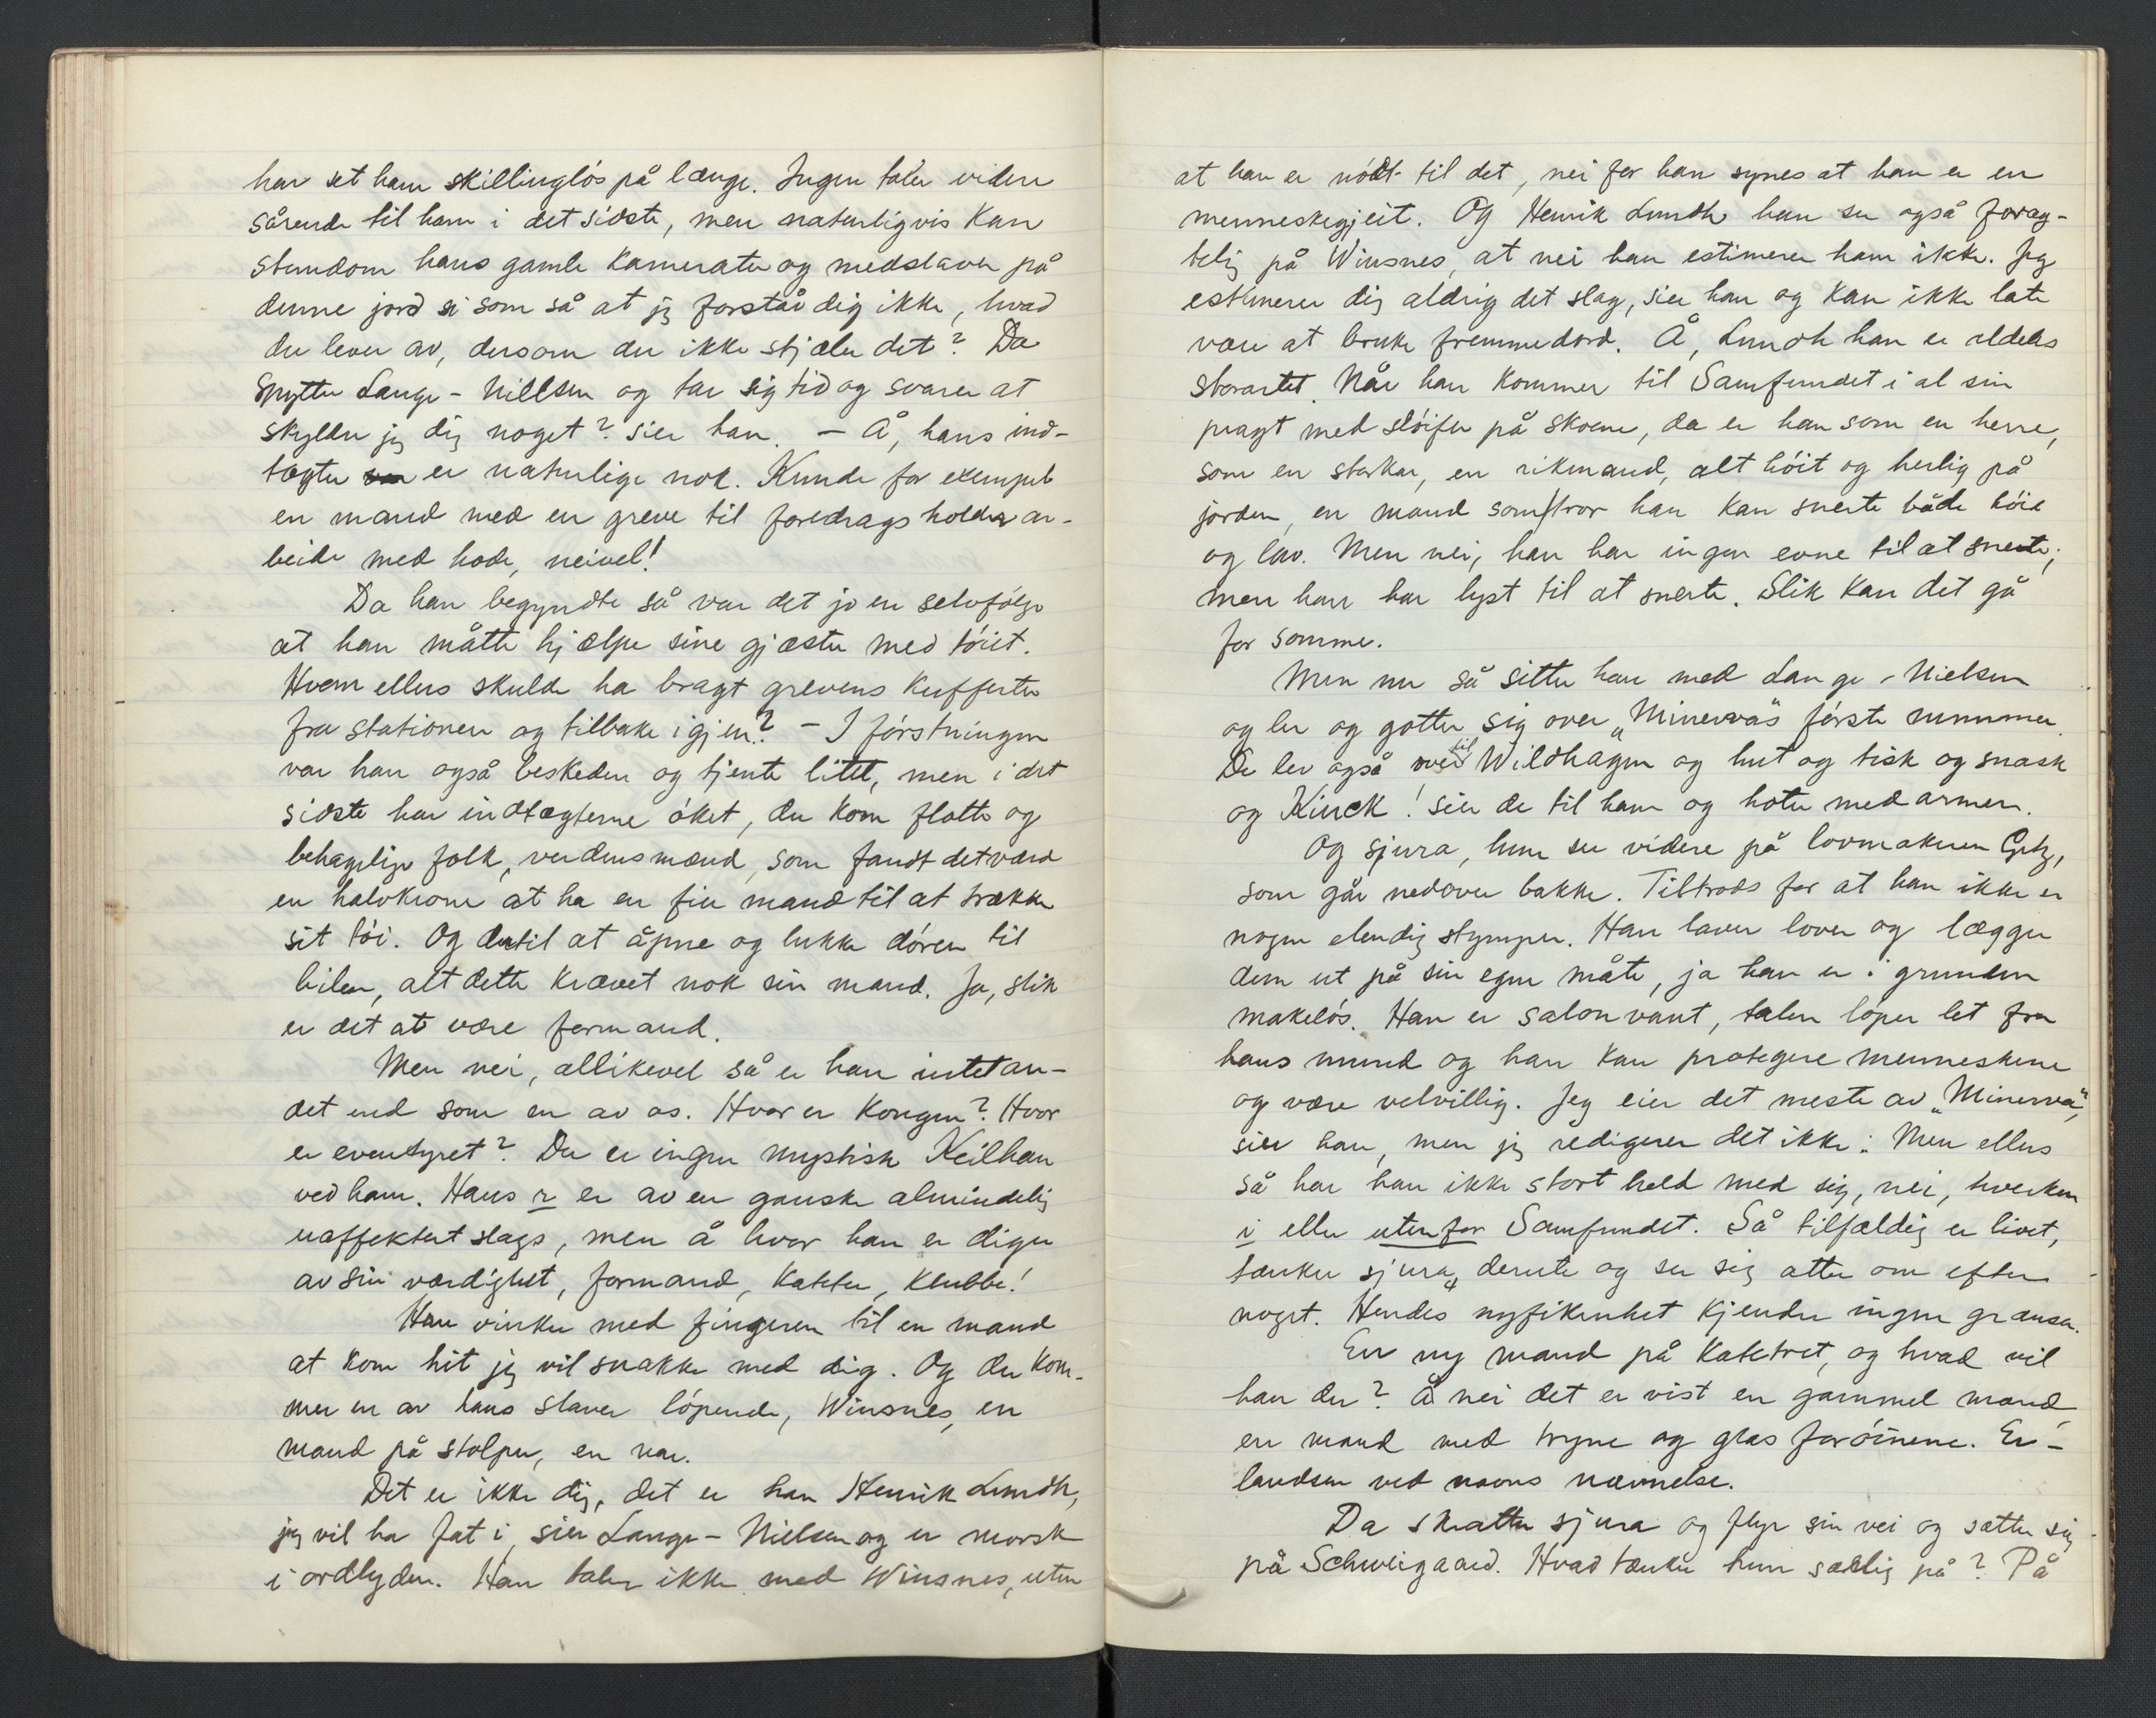 har set ham skillingløs på længe. Ingen taler videre
sårende til ham i det sidste, men naturligvis kan
stundom hans gamle kamerater og medslaver på
denne jord si som så at jeg forstår dig ikke, hvad
du lever av, dersom du ikke stjæler det? Da
spytter Lange-Nillsen og tar sig tid og svarer at
skylder jeg dig noget? sier han. – Å, hans ind-
tægter er naturlige nok. Kunde for exempel
en mand med en greve til foredragsholder ar-
beide med hode, neivel!
Da han begyndte så var det jo en selvfølge
at han måtte hjælpe sine gjæster med tøiet.
Hvem ellers skulde ha bragt grevens kufferter
fra stationen og tilbake igjen? – I førstningen
var han også beskeden og tjente litet, men i det
sidste har indtægterne øket, der kom flotte og
behagelige folk, verdensmænd, som fandt det værd
en halvkrone at ha en fin mand til at trække
sit tøi. Og dertil at åpne og lukke døren til
bilen, alt dette krævet nok sin mand. Ja, slik
er det at være formand.
Men nei, allikevel så er han intet an-
det end som en av os. Hvor er kongen? Hvor
er eventyret? Der er ingen mystisk Keilhau
ved ham. Hans r er av en ganske almindelig
uaffektert slags, men å hvor han er diger
av sin værdighet, formand, kateter, klubbe!
Han vinker med fingeren til en mand
at kom hit jeg vil snakke med dig. Og der kom-
mer en av hans slaver løpende, Winsnes, en
mand på stolper, en nar.
Det er ikke dig, det er han Henrik Lundh,
jeg vil ha fat i, sier Lange-Nielsen og er morsk
i ordlyden. Han taler ikke med Winsnes, uten
at han er nødt til det, nei for han synes at han er en
menneskegjeit. Og Henrik Lundh han ser også forag-
telig på Winsnes, at nei han estimerer ham ikke. Jeg
estimerer dig aldrig det slag, sier han og kan ikke late
være at bruke fremmedord. Å, Lundh han er aldeles
storartet. Når han kommer til Samfundet i al sin
pragt med sløifer på skoene, da er han som en herre,
som en storkar, en rikmand, alt høit og herlig på
jorden, en mand som tror han kan snerte både høie
og lav. Men nei, han har ingen evne til at snerte,
men han har lyst til at snerte. Slik kan det gå
for somme.
Men nu så sitter han med Lange-Nielsen
og ler og gotter sig over „Minerva"s første nummer.
De ler også til Wildhagen og hut og tisk og snask
og Kinck! sier de til ham og hoter med armen.
Og sjura, hun ser videre på lovmakeren Getz,
som går nedover bakke. Tiltrods for at han ikke er
nogen elendig stymper. Han laver lover og lægger
dem ut på sin egen måte, ja han er i grunden
makeløs. Han er salonvant, talen løper let fra
hans mund og han kan protegere menneskene
og være velvillig. Jeg eier det meste av „Minerva",
sier han, men jeg redigerer det ikke. Men ellers
så har han ikke stort held med sig, nei, hverken
i eller utenfor Samfundet. Så tilfældig er livet,
tænker sjura derute og ser sig atter om efter
noget. Hendes nyfikenhet kjender ingen grænser.
En ny mand på katetret, og hvad vil
han der? Å nei det er vist en gammel mand
en mand med tryne og glas for øinene. Er-
landsen ved navns nævnelse.
Da skratter sjura og flyr sin vei og sætter sig
på Schweigaard. Hvad tænker hun særlig på? På